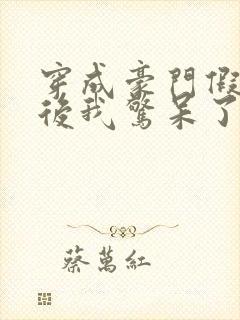 穿成豪門假
後我驚呆了
蔡萬紅